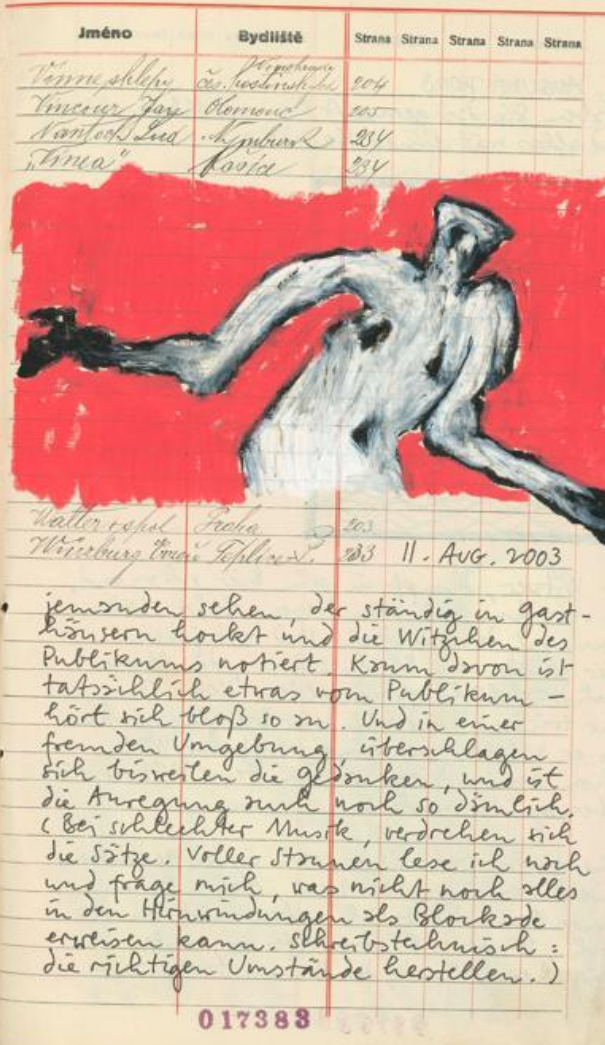 Jméno Bydliště Strana Strana Strana Strana Strana
Vinné sklepy 204
Vincour Olomouc 205
Nymburk 234
"Vinea" 234
Walter a spol Praha 203
Würzburg Teplice 233 11. AUG. 2003
jemanden sehen, der ständig in Gast-
häusern hockt und die Witzchen des
Publikums notiert. Kaum davon ist
tatsächlich etwas vom Publikum –
hört sich bloß so an. Und in einer
fremden Umgebung überschlagen
sich bisweilen die Gedanken, und ist
die Anregung auch noch so dämlich.
(Bei schlechter Musik, verdrehen sich
die Sätze. Voller Staunen lese ich nach
und frage mich, was nicht noch alles
in den Hirnwindungen als Blockade
erweisen kann. Schreibstechnisch:
die richtigen Umstände herstellen.)
017383